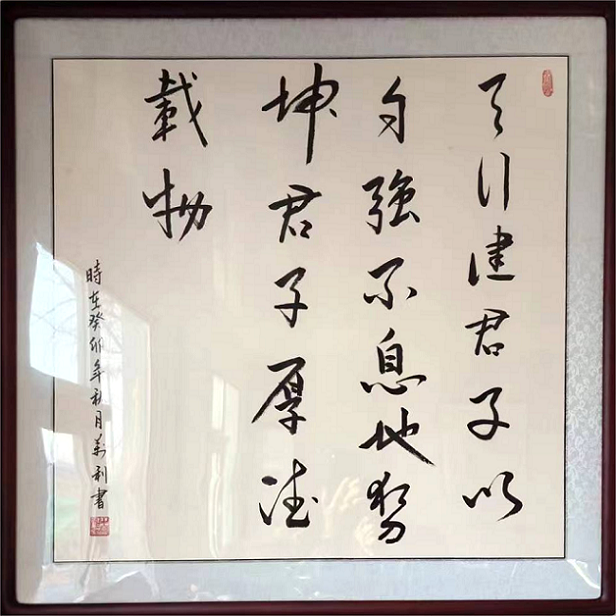 天行健君子以
自強不息地勢
坤君子厚德
載物
時在癸卯年秋月萬利書